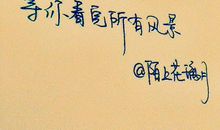 等你看完所有风景
@陌上花满月